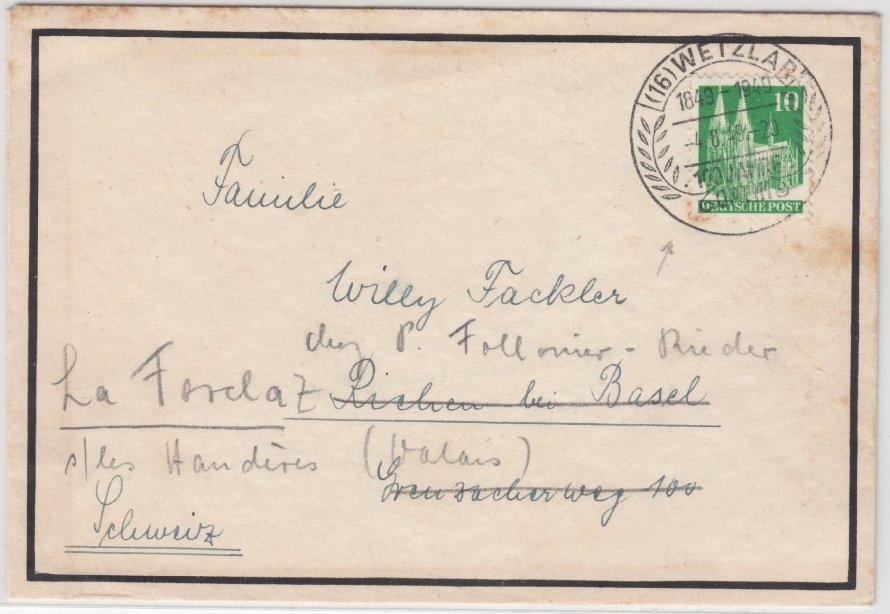 (16) WETZLAR
1849 – 1949
-4.8.49-20
100 JAHRE
OPTIK
10
DEUTSCHE POST
Familie
Willy Fackler
chez P. Follonier - Rieder
La Forclaz Riehen bei Basel
s/les Haudères (Valais)
Grenzacherweg 100
Schweiz